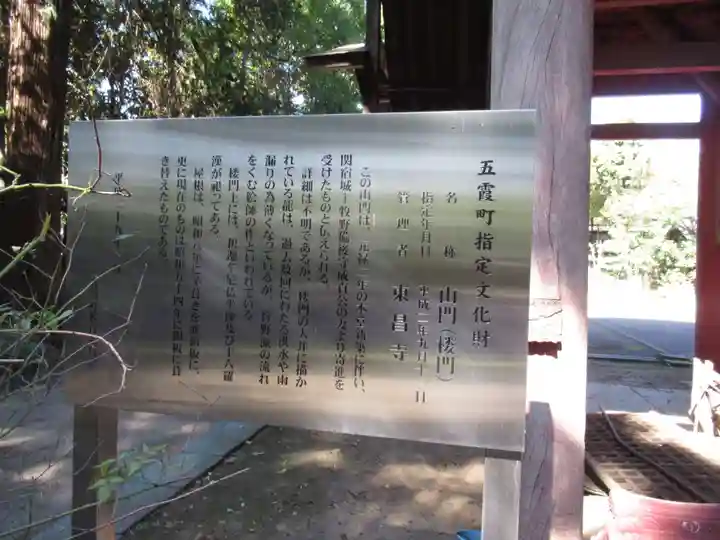 五霞町指定文化財
名称 山門(楼門)
指定年月日 平成二年九月十 日
管理者 東昌寺
この山門は、元禄二年の本堂 に伴い、
関宿城主牧野備後守成貞公の 寄進を
受けたものと伝えられる。
詳細は不明であるが、楼門の天井に描か
れている龍は、過去数回にわたる洪水や雨
漏りの為薄くなっているが、狩野派の流れ
をくむ絵師の作といわれている。
楼門上には、 及び十六羅
漢が祀ってある。
屋根は、昭和 年に茅葺きを亜鉛板に、
更に現在のものは昭和五十四年に銅板に葺
き替えたものである。
平成